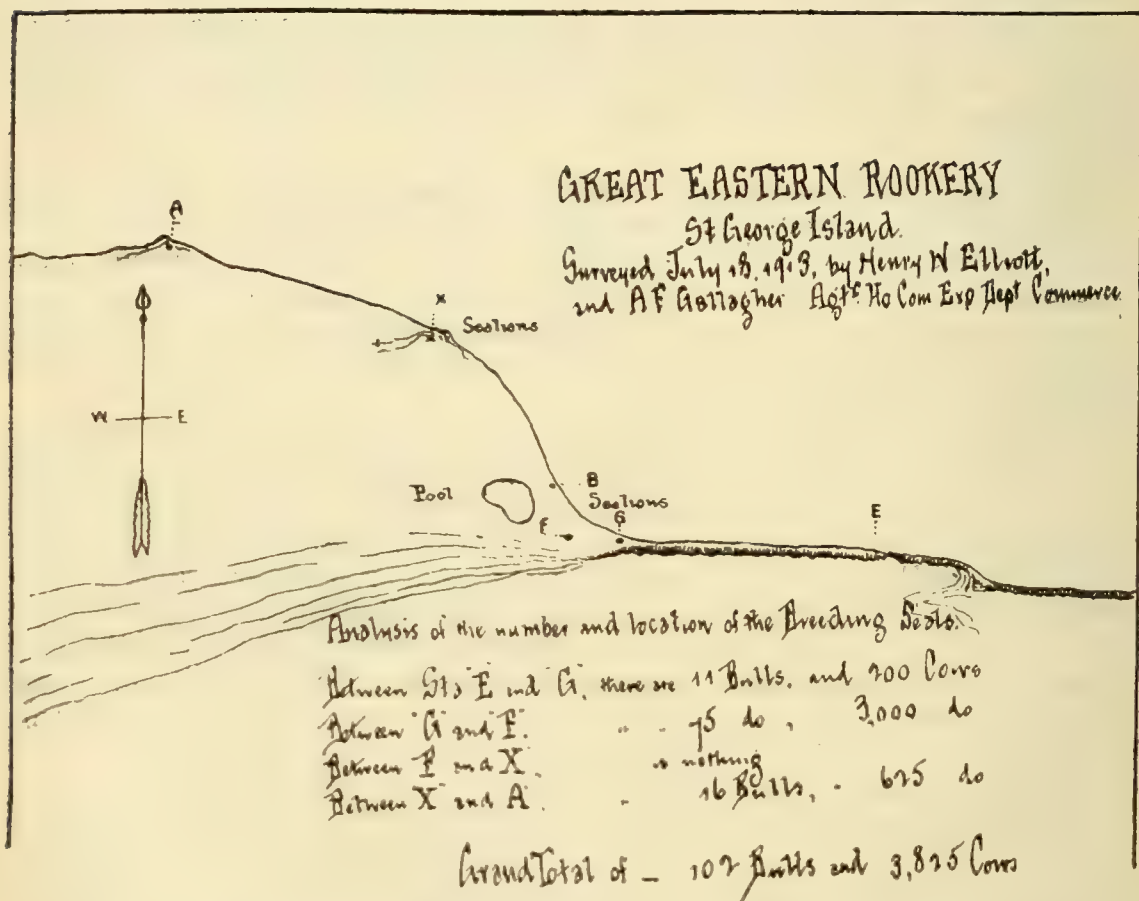 A
GREAT EASTERN ROOKERY
St George Island.
Surveyed July 18, 1913, by Henry W Elliott,
and A F Gallagher Agts Ho Com Exp Dept Commerce.
X
Sections
W E
Pool
B
Sections
F
G
E
Analysis of the number and location of the Breeding Seals.
Between Sta "E" and "G", there are 11 Bulls, and 200 Cows
Between "G" and "F". " " 75 do , 3,000 do
Between F and X. is nothing
Between "X" and "A". " 16 Bulls, " 625 do
Grand Total of – 102 Bulls and 3,825 Cows